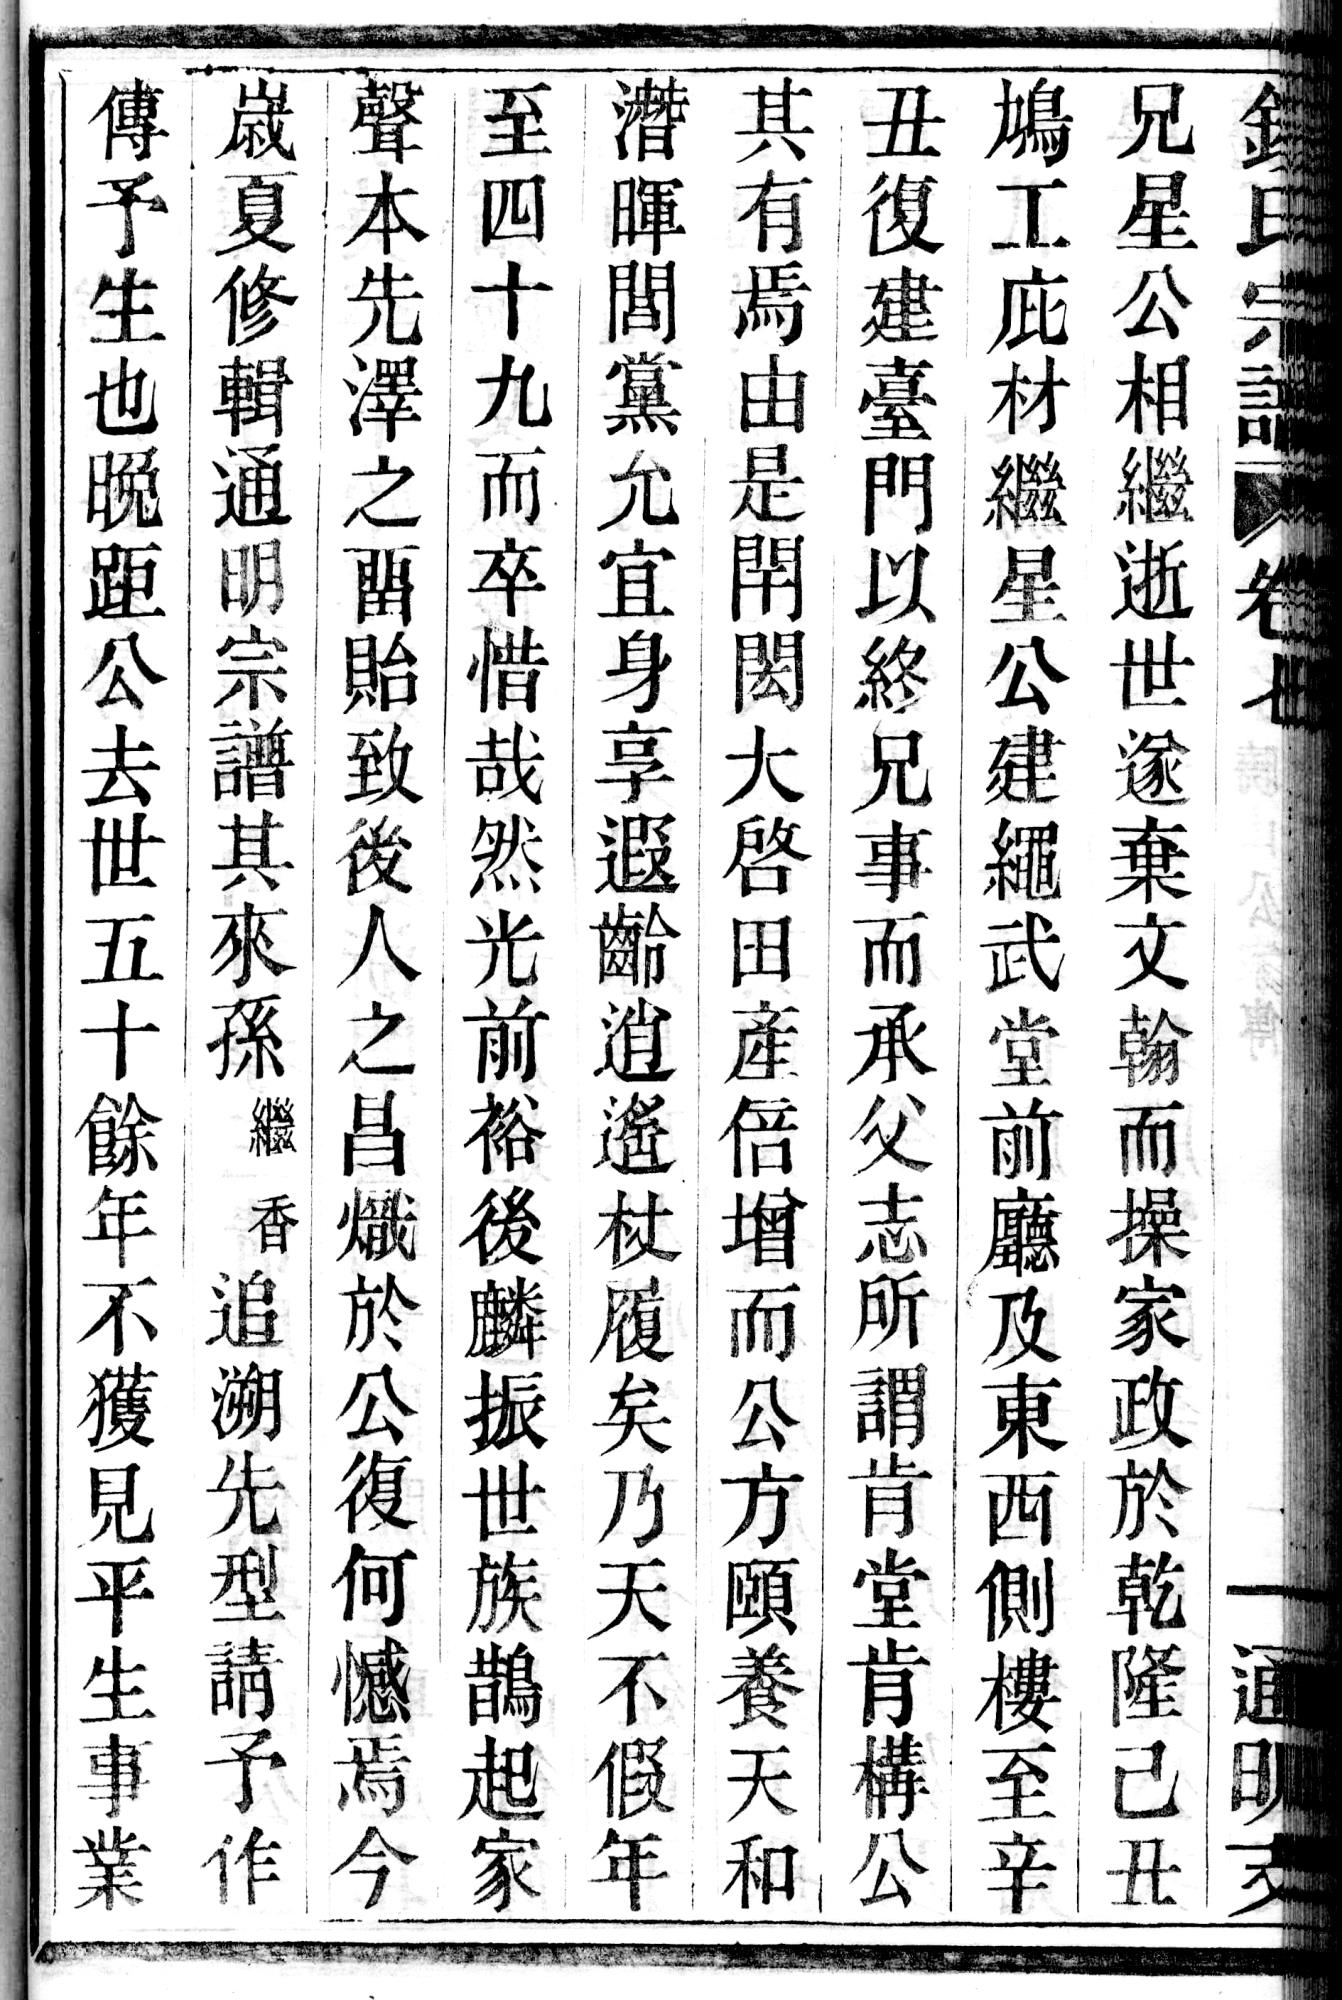 氏宗譜 卷 通明
兄星公相繼逝世遂棄文翰而操家政於乾隆己丑
鳩工庇材繼星公建繩武堂前廳及東西側樓至辛
丑復建臺門以終兄事而承父志所謂肯堂肯構公
其有焉由是閈閎大啓田產倍增而公方頤養天和
潛暉閭黨允宜身享遐齡逍遙杖履矣乃天不假年
至四十九而卒惜哉然光前裕後麟振世族鵲起家
聲本先澤之留貽致後人之昌熾於公復何憾焉今
歲夏修輯通明宗譜其來孫繼香追溯先型請予作
傳予生也晚距公去世五十餘年不獲見平生事業